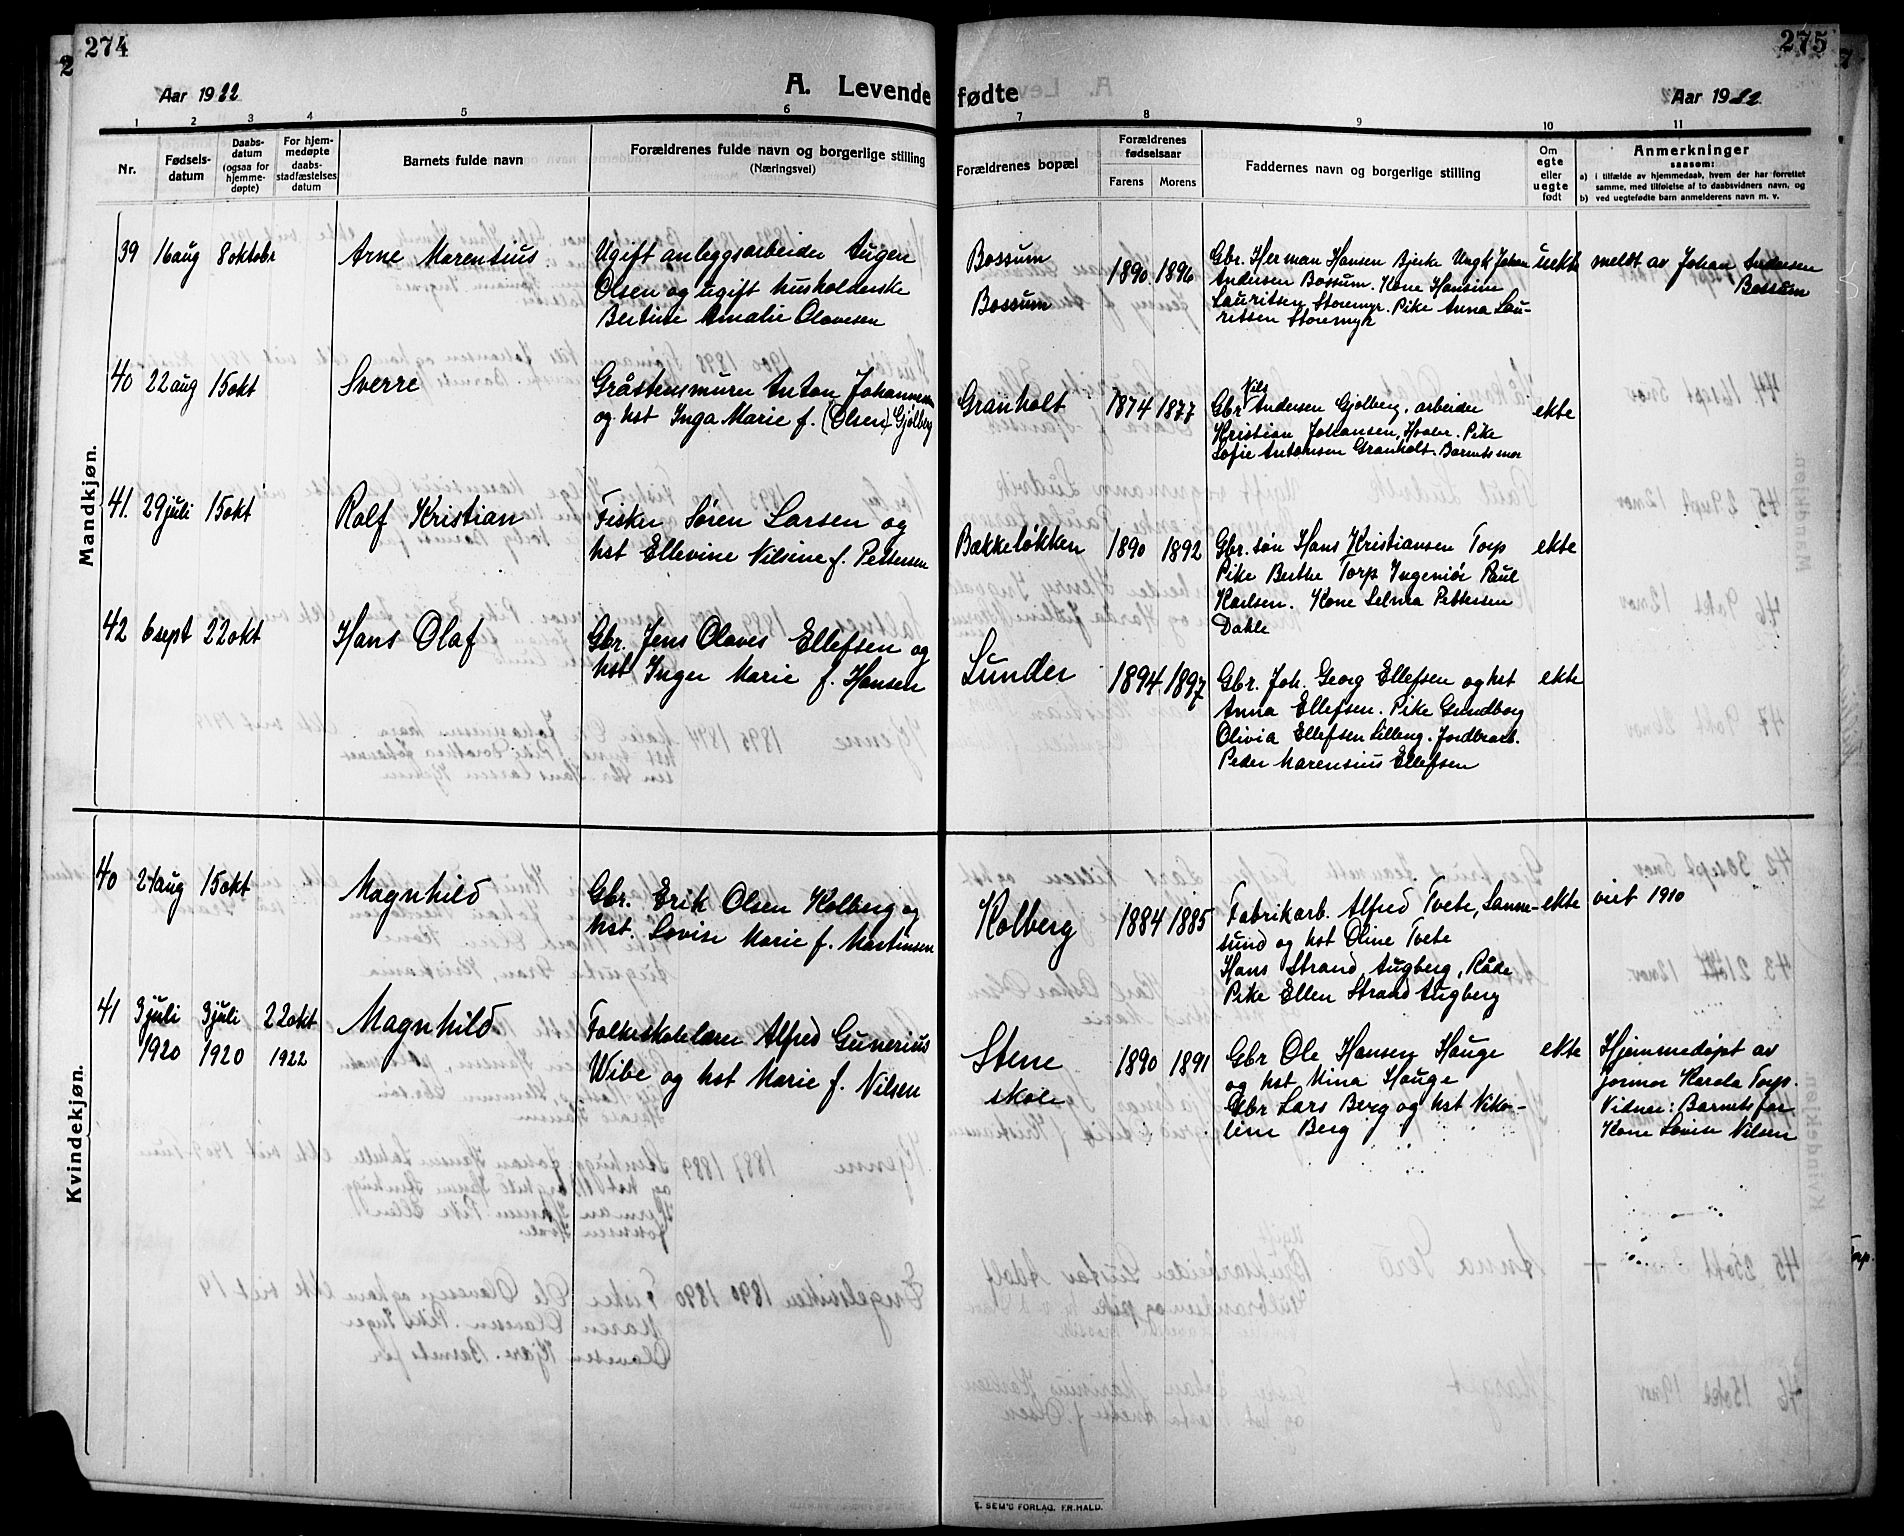 274
Aar 1922
A. Levende
1 2 3 4 5 6
Nr.
Fødsels-
datum
Daabs-
datum
(ogsaa for
hjemme-
døpte)
For hjem-
medøpte
daabs-
stadfæstelses
datum
Barnets fulde navn
Forældrenes fulde navn og borgerlige stilling
(Næringsvei)
Mandkjøn.
39 16 aug 8 oktobr Arne Marentius
Ugift anleggsarbeider Augen
Olsen og ugift husholderske
Bertine Amalie Olavesen
40 22 aug 15 okt Sverre
Gråstensmurer Anton Johannesen
og hst Inga Marie f. (Olsen) Gjølberg
41. 29 juli 15 okt Rolf Kristian
Fisker Søren Larsen og
hst Ellevine Nilsine f. Pettersen
42 6 sept 22 okt Hans Olaf
Gbr. Jens Olaves Ellefsen og
hst Inger Marie f. Hansen
Kvindekjøn.
40 24 aug 15 okt Magnhild
Gbr. Erik Olsen Kolberg og
hst. Lovise Marie f. Martinsen
41 3 juli 3 juli 22 okt Magnhild
1920 1920 1922
Folkeskolelærer Alfred Gunerius
Wibe og hst Marie f. Nilsen
275
fødte
Aar 1922
7 8 9 10 11
Forældrenes bopæl
Forældrenes
fødselsaar
Farens Morens
Faddernes navn og borgerlige stilling
Om
egte
eller
uegte
født
Anmerkninger
saasom:
a) i tilfælde av hjemmedaab, hvem der har forrettet
samme, med tilføielse af to daabsvidners navn, og
b) ved uegtefødte barn anmelderens navn m. v.
Bossum
Bossum
1890 1896
Gbr. Herman Hansen Bjerke Ungk Johan
Andersen Bossum. Kone Hansine
Lauritsen Storemyr. Pike Anna Lau-
ritsen Storemyr
uekte
meldt av Johan Andersen
Bossum
Granholt 1874 1877
Nils
Gbr Andersen Gjølberg. arbeider
Kristian Johansen, Hvaler. Pike
Sofie Antonsen Granholt. Barnets mor
ekte
Bækkeløkken 1890 1892
Gbr. søn Hans Kristiansen Torp
Pike Berthe Torp Ingeniør Paul
Karlsen. Kone Selma Pettersen
Dahle
ekte
Lunder 1894 1897
Gbr. Joh. Georg Ellefsen og hst
Anna Ellefsen. Pike Gundborg
Olivia Ellefsen Lilleng. Jordbrarb.
Peder Marensius Ellefsen
ekte
Kolberg 1884 1885
Fabrikarb. Alfred Tvete, Sanne-
sund og hst Oline Tvete
Hans Strand Augberg, Råde
Pike Ellen Strand Augberg
ekte
viet 1910
Stene
skole
1890 1891
Gbr Ole Hansen Hauge
og hst Mina Hauge
Gbr Lars Berg og hst Niko-
line Berg
ekte
Hjemmedøpt av
jormor Karola Torp.
Vidner: Barnets far
Kone Lovise Nilsen
E. SEM'S FORLAG. FR.HALD.